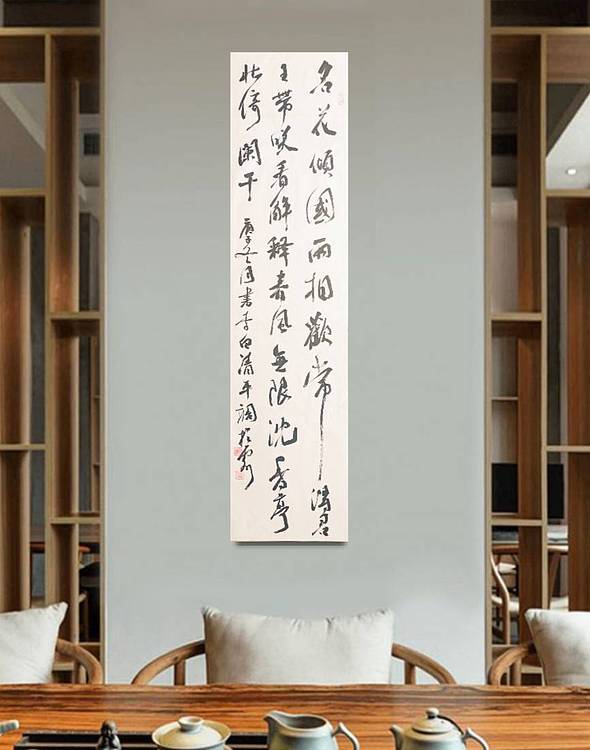 名花傾國兩相歡常得君
王帶咲看解釋春風無限沈香亭
北倚闌干 庚子月書李白清平調於